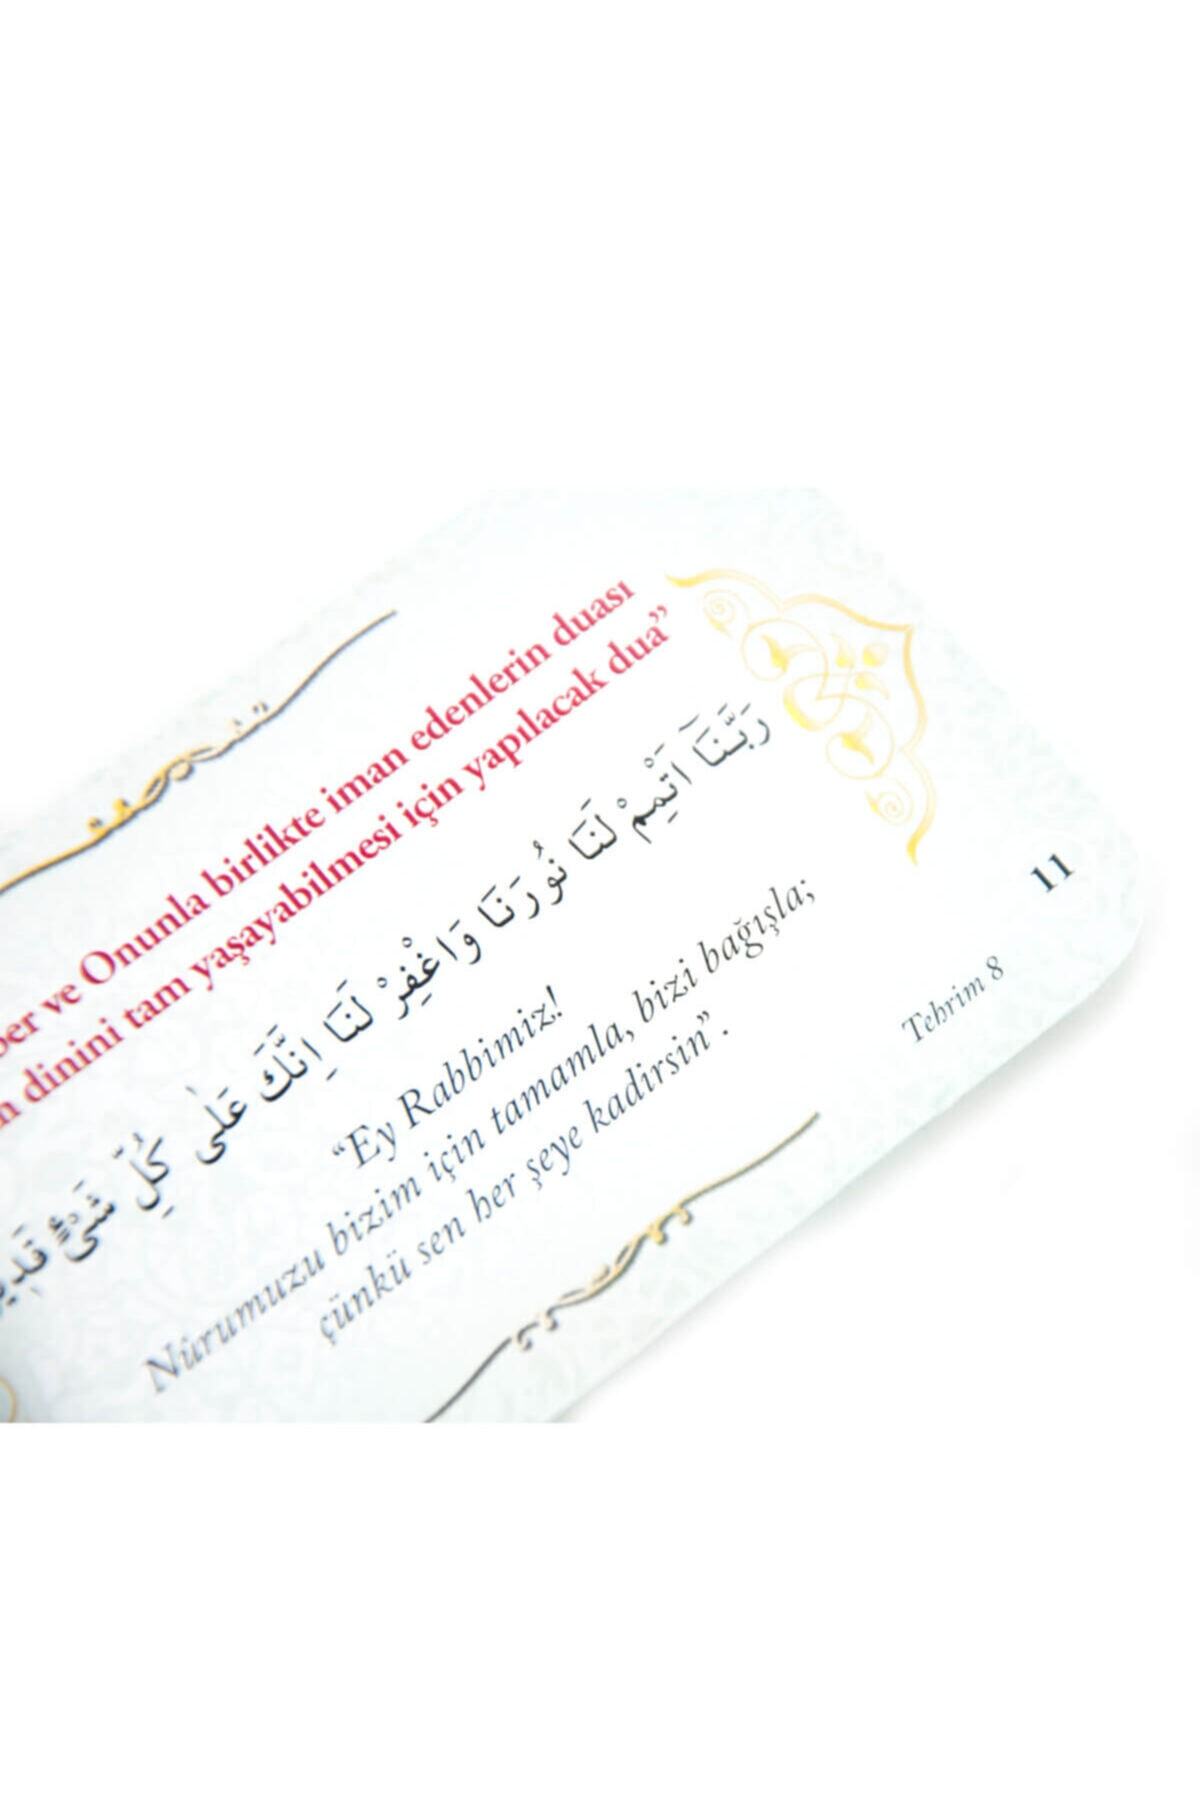 ve Onunla birlikte iman edenlerin duası
dinini tam yaşayabilmesi için yapılacak dua”
رَبَّنَآ اَتْمِمْ لَنَا نُورَنَا وَاغْفِرْ لَنَا اِنَّكَ عَلٰى كُلِّ شَىْءٍ
“Ey Rabbimiz!
Nûrumuzu bizim için tamamla, bizi bağışla;
çünkü sen her şeye kadirsin”.
Tehrim 8
11